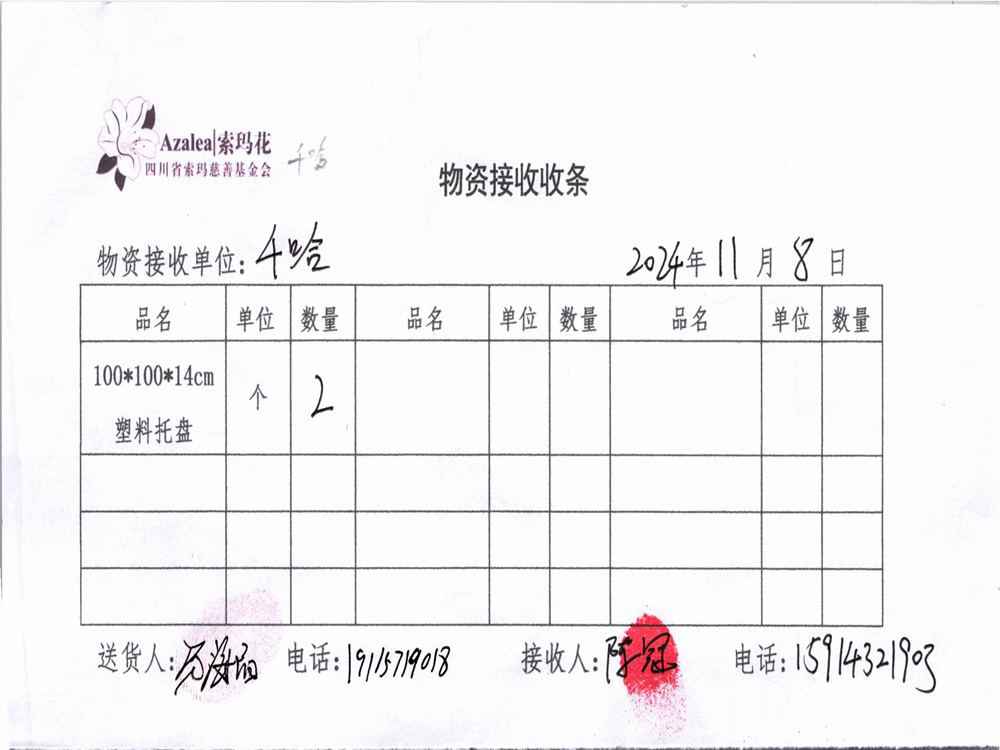 Azalea|索玛花
四川省索玛慈善基金会
千哈
物资接收收条
物资接收单位:千哈 2024年11月8日
品名 单位 数量 品名 单位 数量 品名 单位 数量
100*100*14cm
塑料托盘 个 2
送货人: 电话:19115719018 接收人: 冠 电话:15914321903